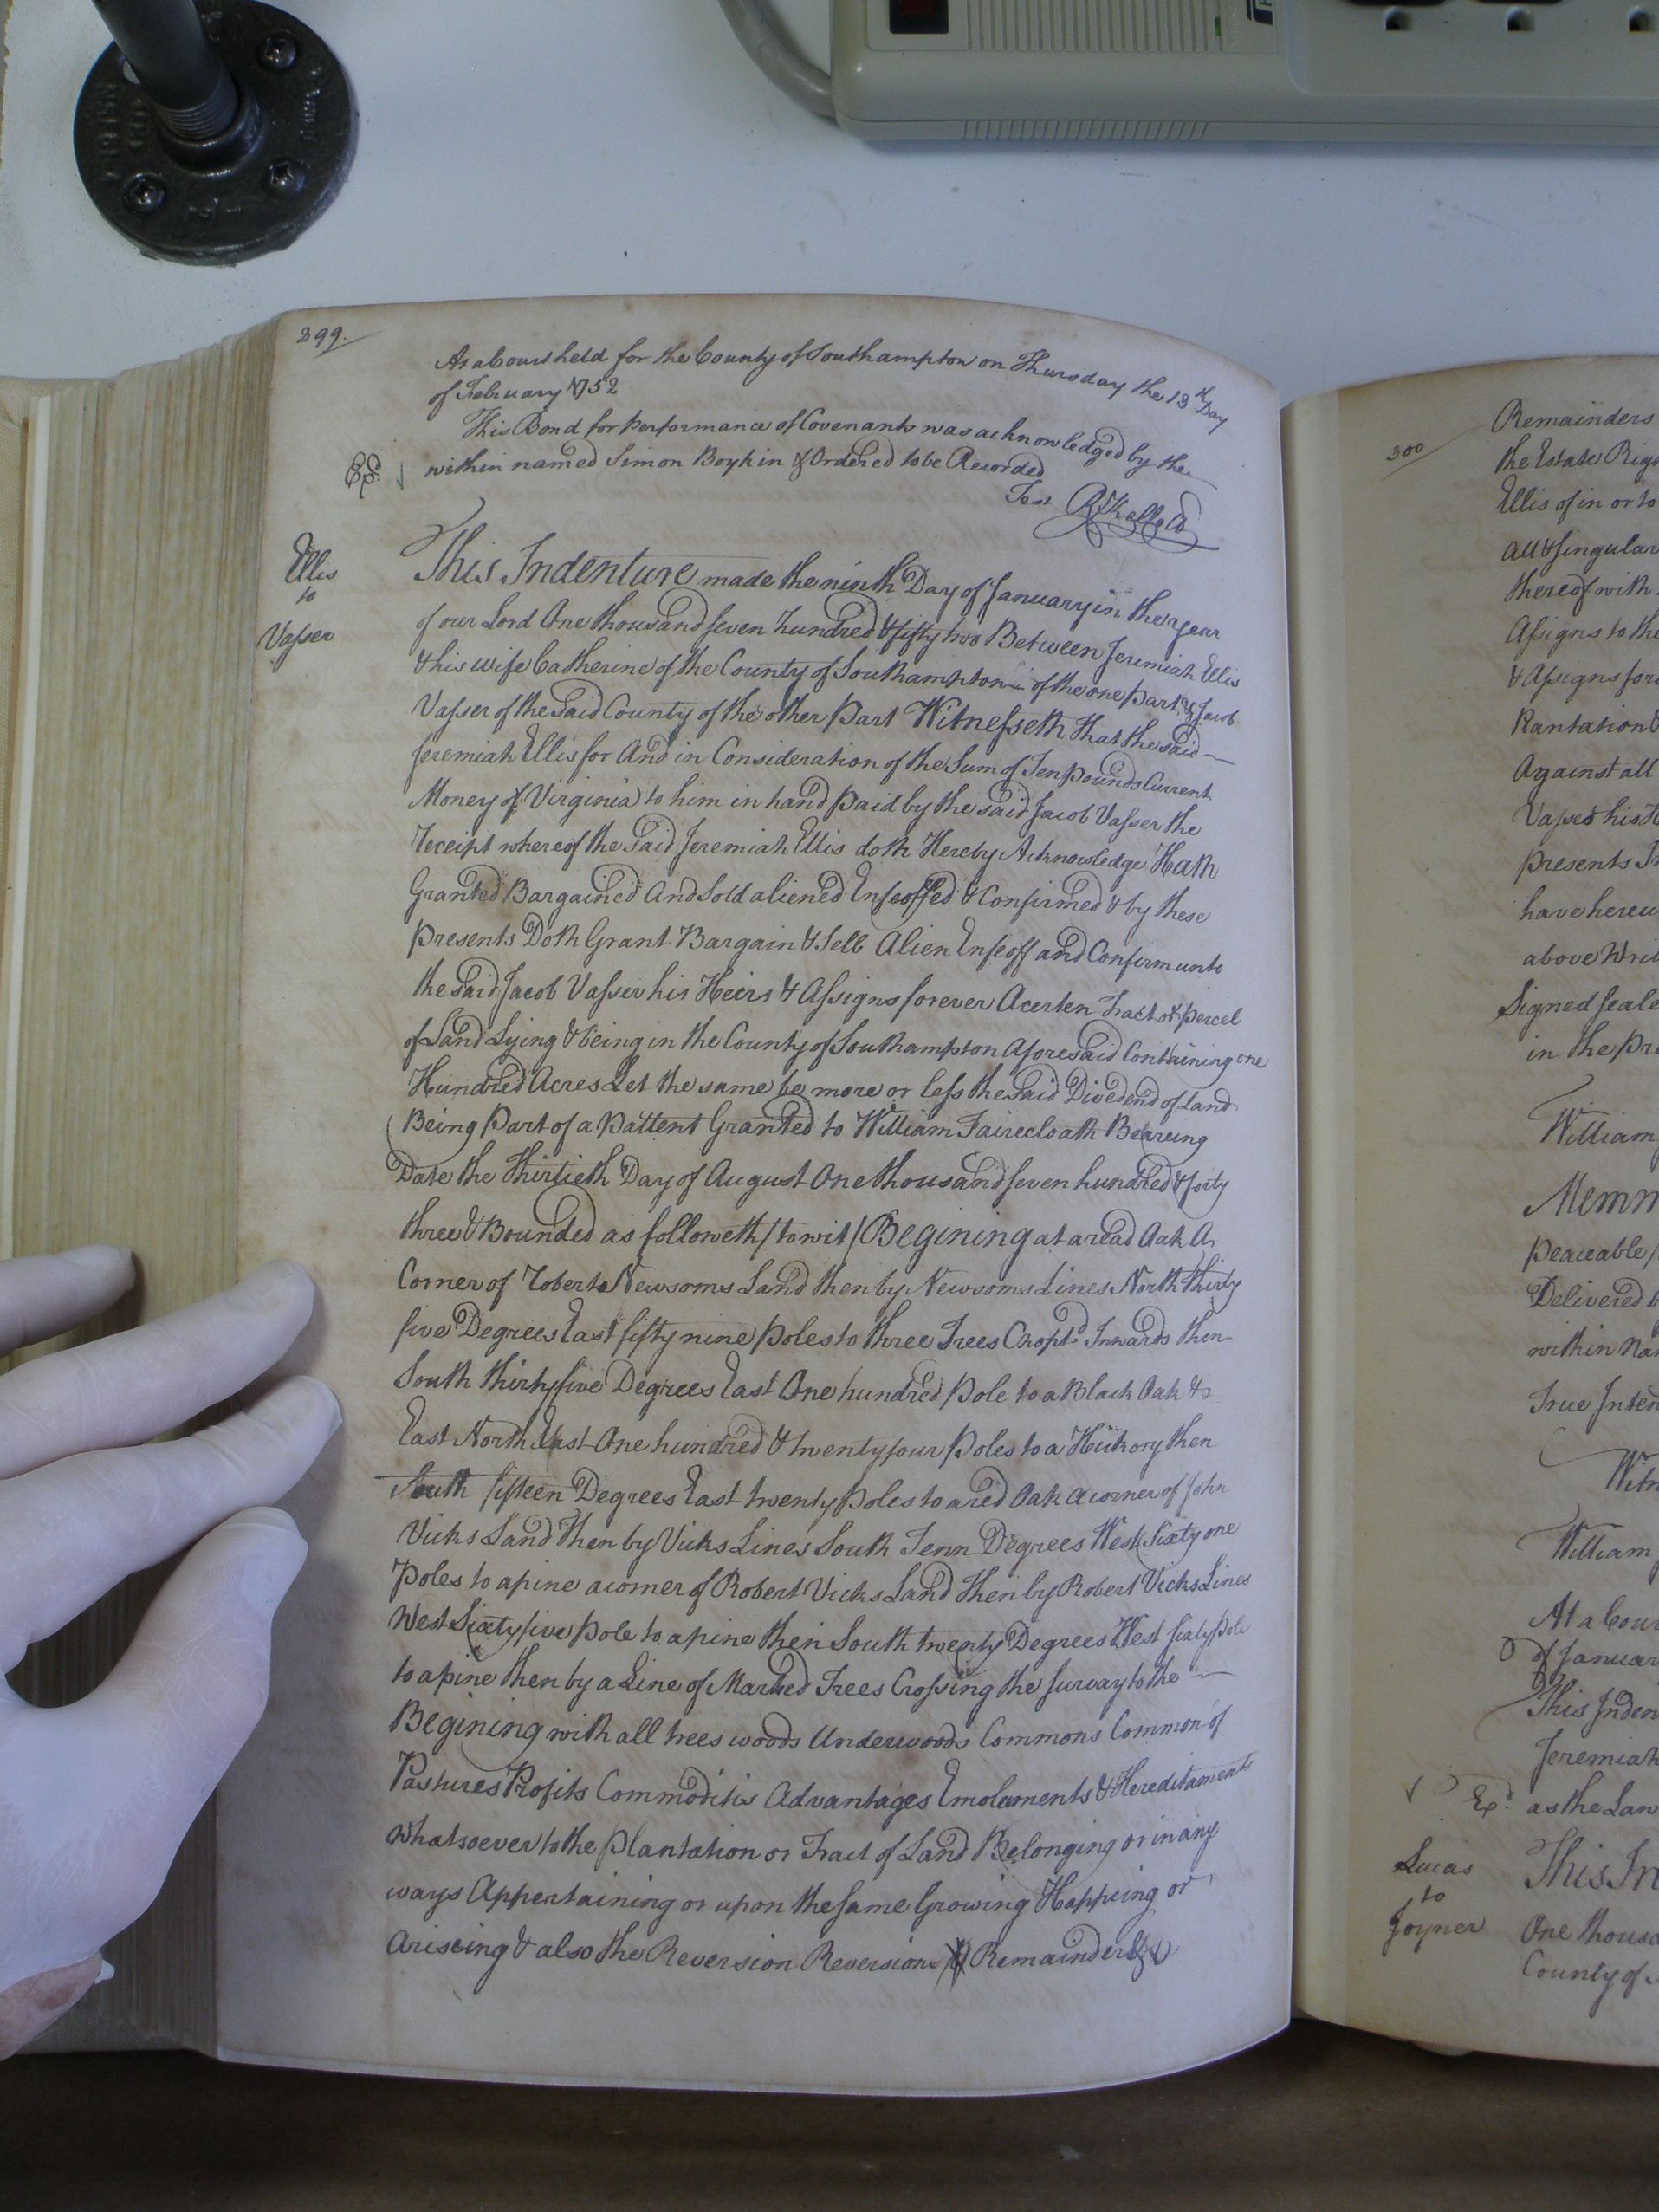 299.
At a Court held for the County of Southampton on Thursday the 13th Day
of February 1752
This Bond for Performance of Covenants was acknowledged by the
within named Simon Boykin & Ordered to be Recorded
Exd.
Test
Ellis
to
Vasser
This Indenture made the ninth Day of January in the year
of our Lord One thousand seven hundred & fifty two Between Jeremiah Ellis
& his wife Catherine of the County of Southampton of the one part & Jacob
Vasser of the Said County of the other Part Witnesseth That the said
Jeremiah Ellis for And in Consideration of the Sum of Ten pounds Current
Money of Virginia to him in hand paid by the said Jacob Vasser the
receipt whereof the Said Jeremiah Ellis doth Hereby Acknowledge Hath
Granted Bargained And Sold aliened Enfeoffed & Confirmed & by these
presents Doth Grant Bargain & Sell Alien Enfeoff and Confirm unto
the Said Jacob Vasser his Heirs & Assigns forever Acerten Tract or percel
of Land Lying & being in the County of Southampton Aforesaid Containing one
Hundred Acres Let the same be more or less the Said Dividend of Land
Being Part of a Pattent Granted to William Fairecloath Beareing
Date the Thirtieth Day of August One thousand seven hundred & forty
three & Bounded as followeth / to wit / Begining at a read Oak A
Corner of Roberts Newsoms Land then by Newsoms Lines North thirty
five Degrees East fifty nine Poles to three Trees Chopt Inwards then
South thirty five Degrees East One hundred Pole to a Black Oak &
East North East One hundred & twenty four Poles to a Hickory then
South fifteen Degrees East twenty Poles to a red Oak a corner of John
Vicks Land Then by Vicks Lines South Tenn Degrees West Sixty one
Poles to a pine a corner of Robert Vicks Land Then by Robert Vicks Lines
West Sixty five Pole to a pine then South twenty Degrees West sixty pole
to a pine then by a Line of Marked Trees Crossing the survay to the
Begining with all trees woods Underwoods Commons Common of
Pastures Profits Commoditis Advantages Emolements & Hereditaments
whatsoever to the plantation or Tract of Land Belonging or in any
ways Appertaining or upon the same Growing Happeing or
Ariseing & also the Reversion Reversions Remainder &
300
Remainders
the Estate Rig
Ellis of in or to
All & Singular
thereof with
Assigns to the
& Assigns for
Plantation &
Against all
Vasser his H
presents
have hereu
above Wri
Signed Seale
in the Pre
William
Memm
Peaceable
Delivered
within Na
True Inten
Witn
William
At a Cour
of Januar
This Inden
Jeremiah
Exd.
as the Law
Lucas
to
Joyner
This In
One thousa
County of